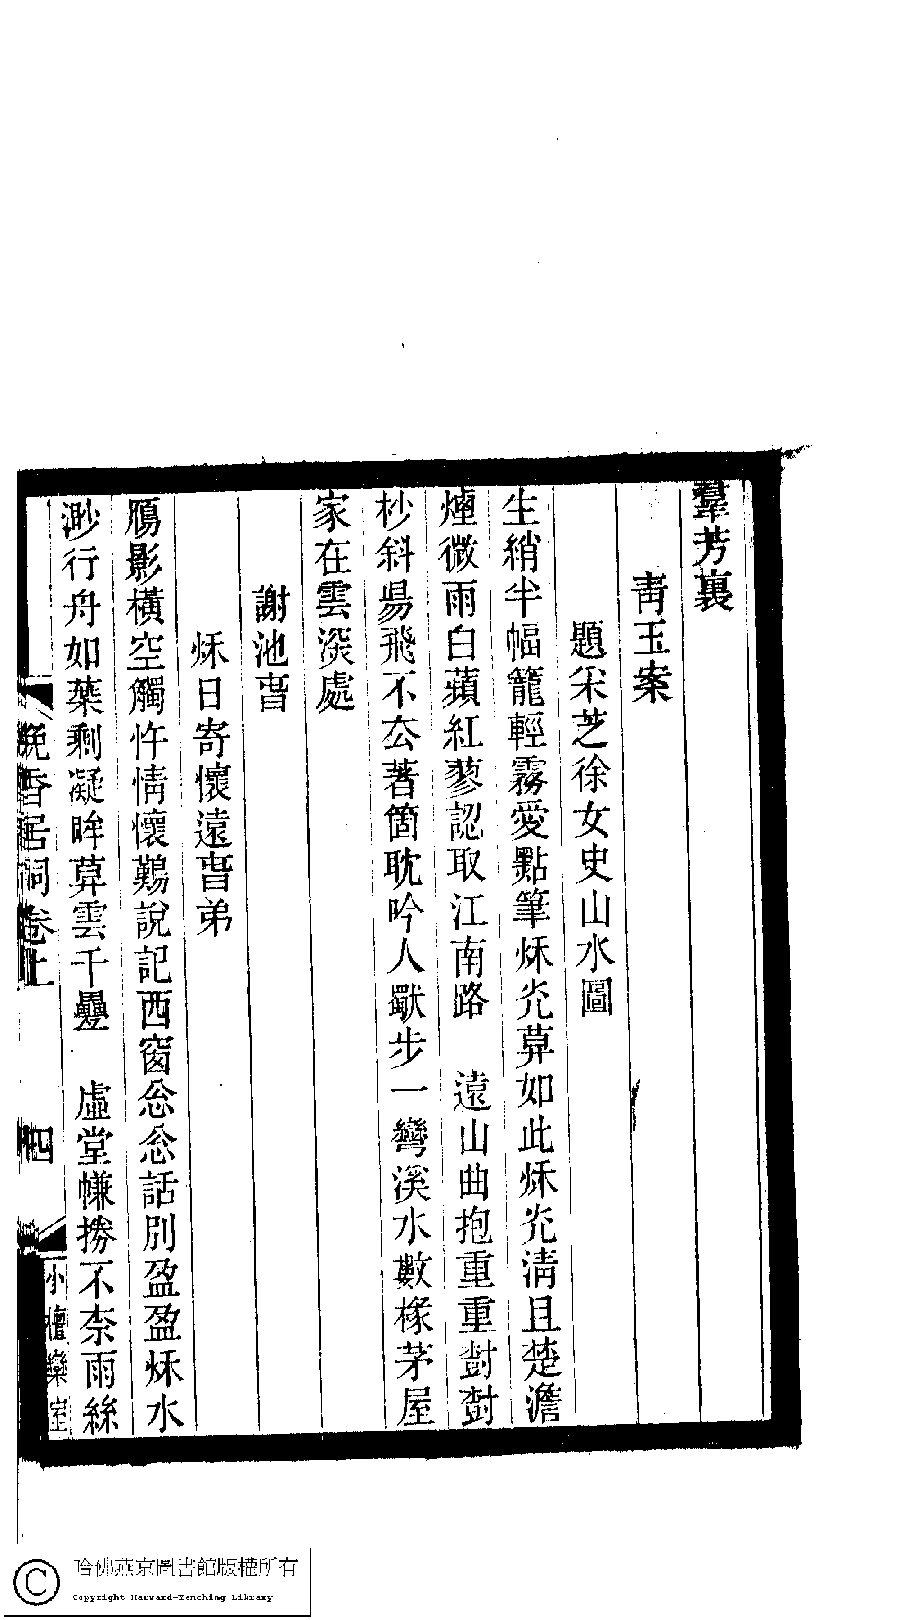 羣芳裏
青玉案
題采芝徐女史山水圖
生綃半幅籠輕霧愛點筆秌光算如此秌光淸且楚澹
煙微雨白蘋紅蓼認取江南路　遠山曲抱重重對對
杪斜陽飛不去著箇耽吟人獨步一彎溪水數椽茅屋
家在雲深處
謝池春
秌日寄懷遠春弟
鴈影橫空觸忤情懷難說記西窗忩忩話別盈盈秌水
渺行舟如葉剩凝眸算雲千疊　虛堂慵撥不柰雨絲
晚香居詞卷上
四
小檀欒室
哈佛燕京圖書館版權所有
Copyright Harvard-Yenching Library